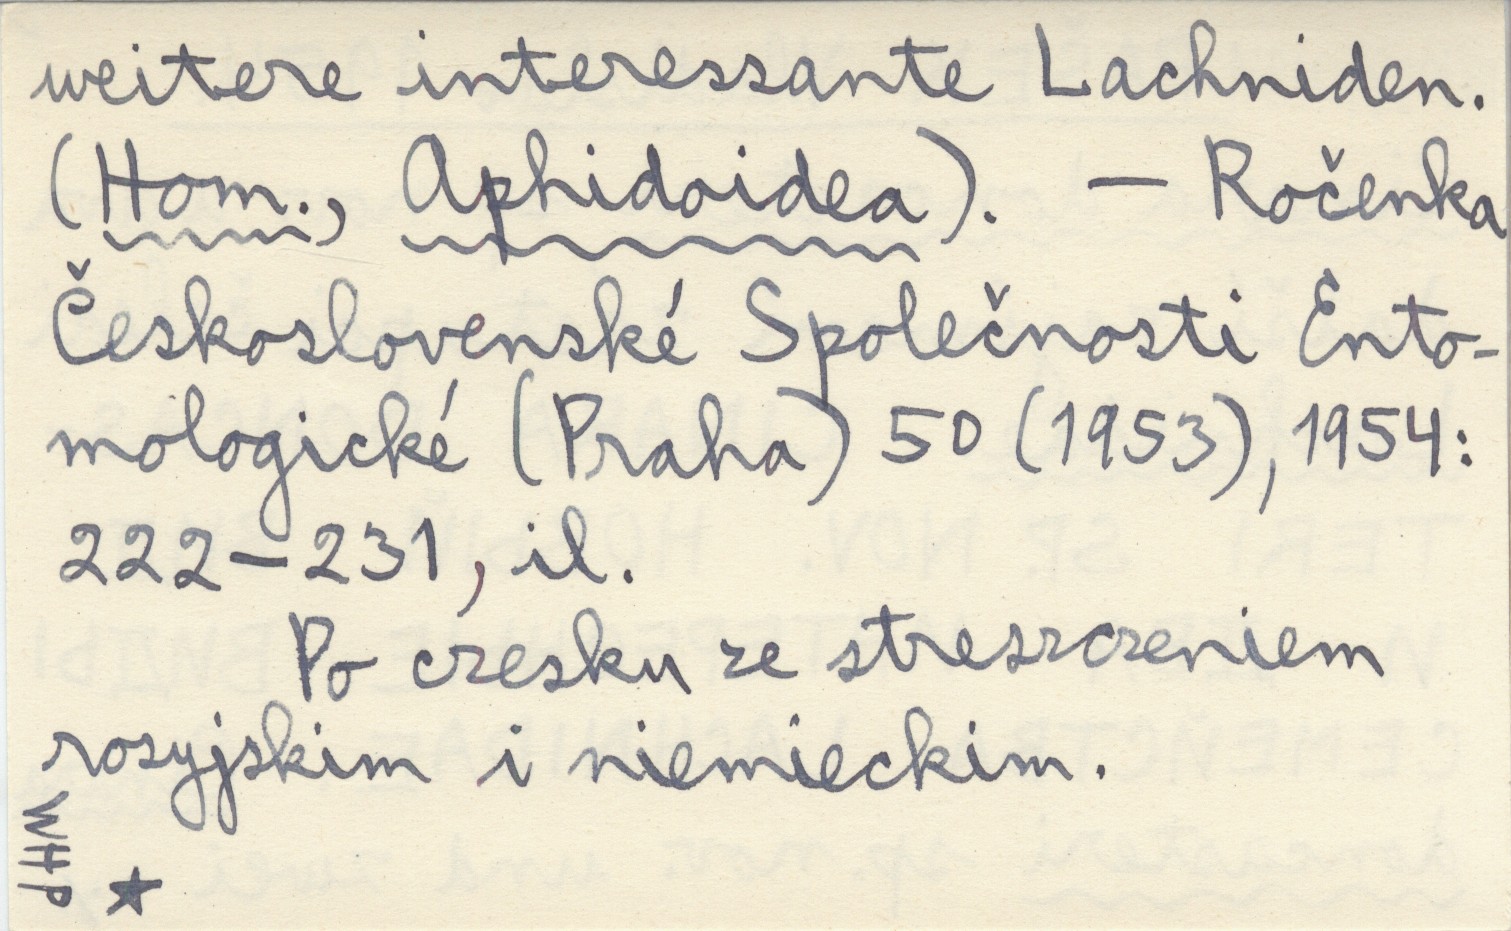 weitere interessante Lachniden.
(Hom., Aphidoidea). — Ročenka
Československé Společnosti Ento-
mologické (Praha) 50 (1953), 1954:
222–231, il.
Po czesku ze streszczeniem
rosyjskim i niemieckim.
WHP ★